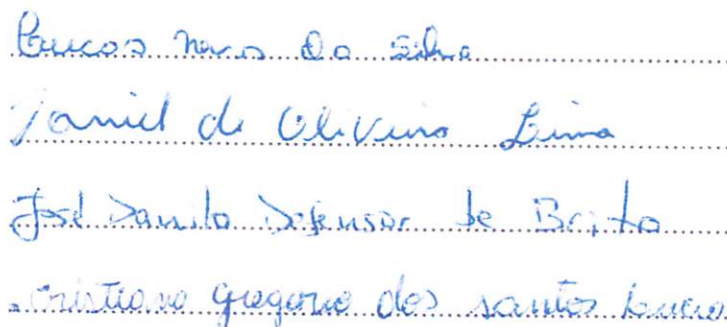 Lucas Neves da Silva
Daniel de Oliveira Lima
José Danilo Defensor de Brito
Cristiano gregorio dos santos